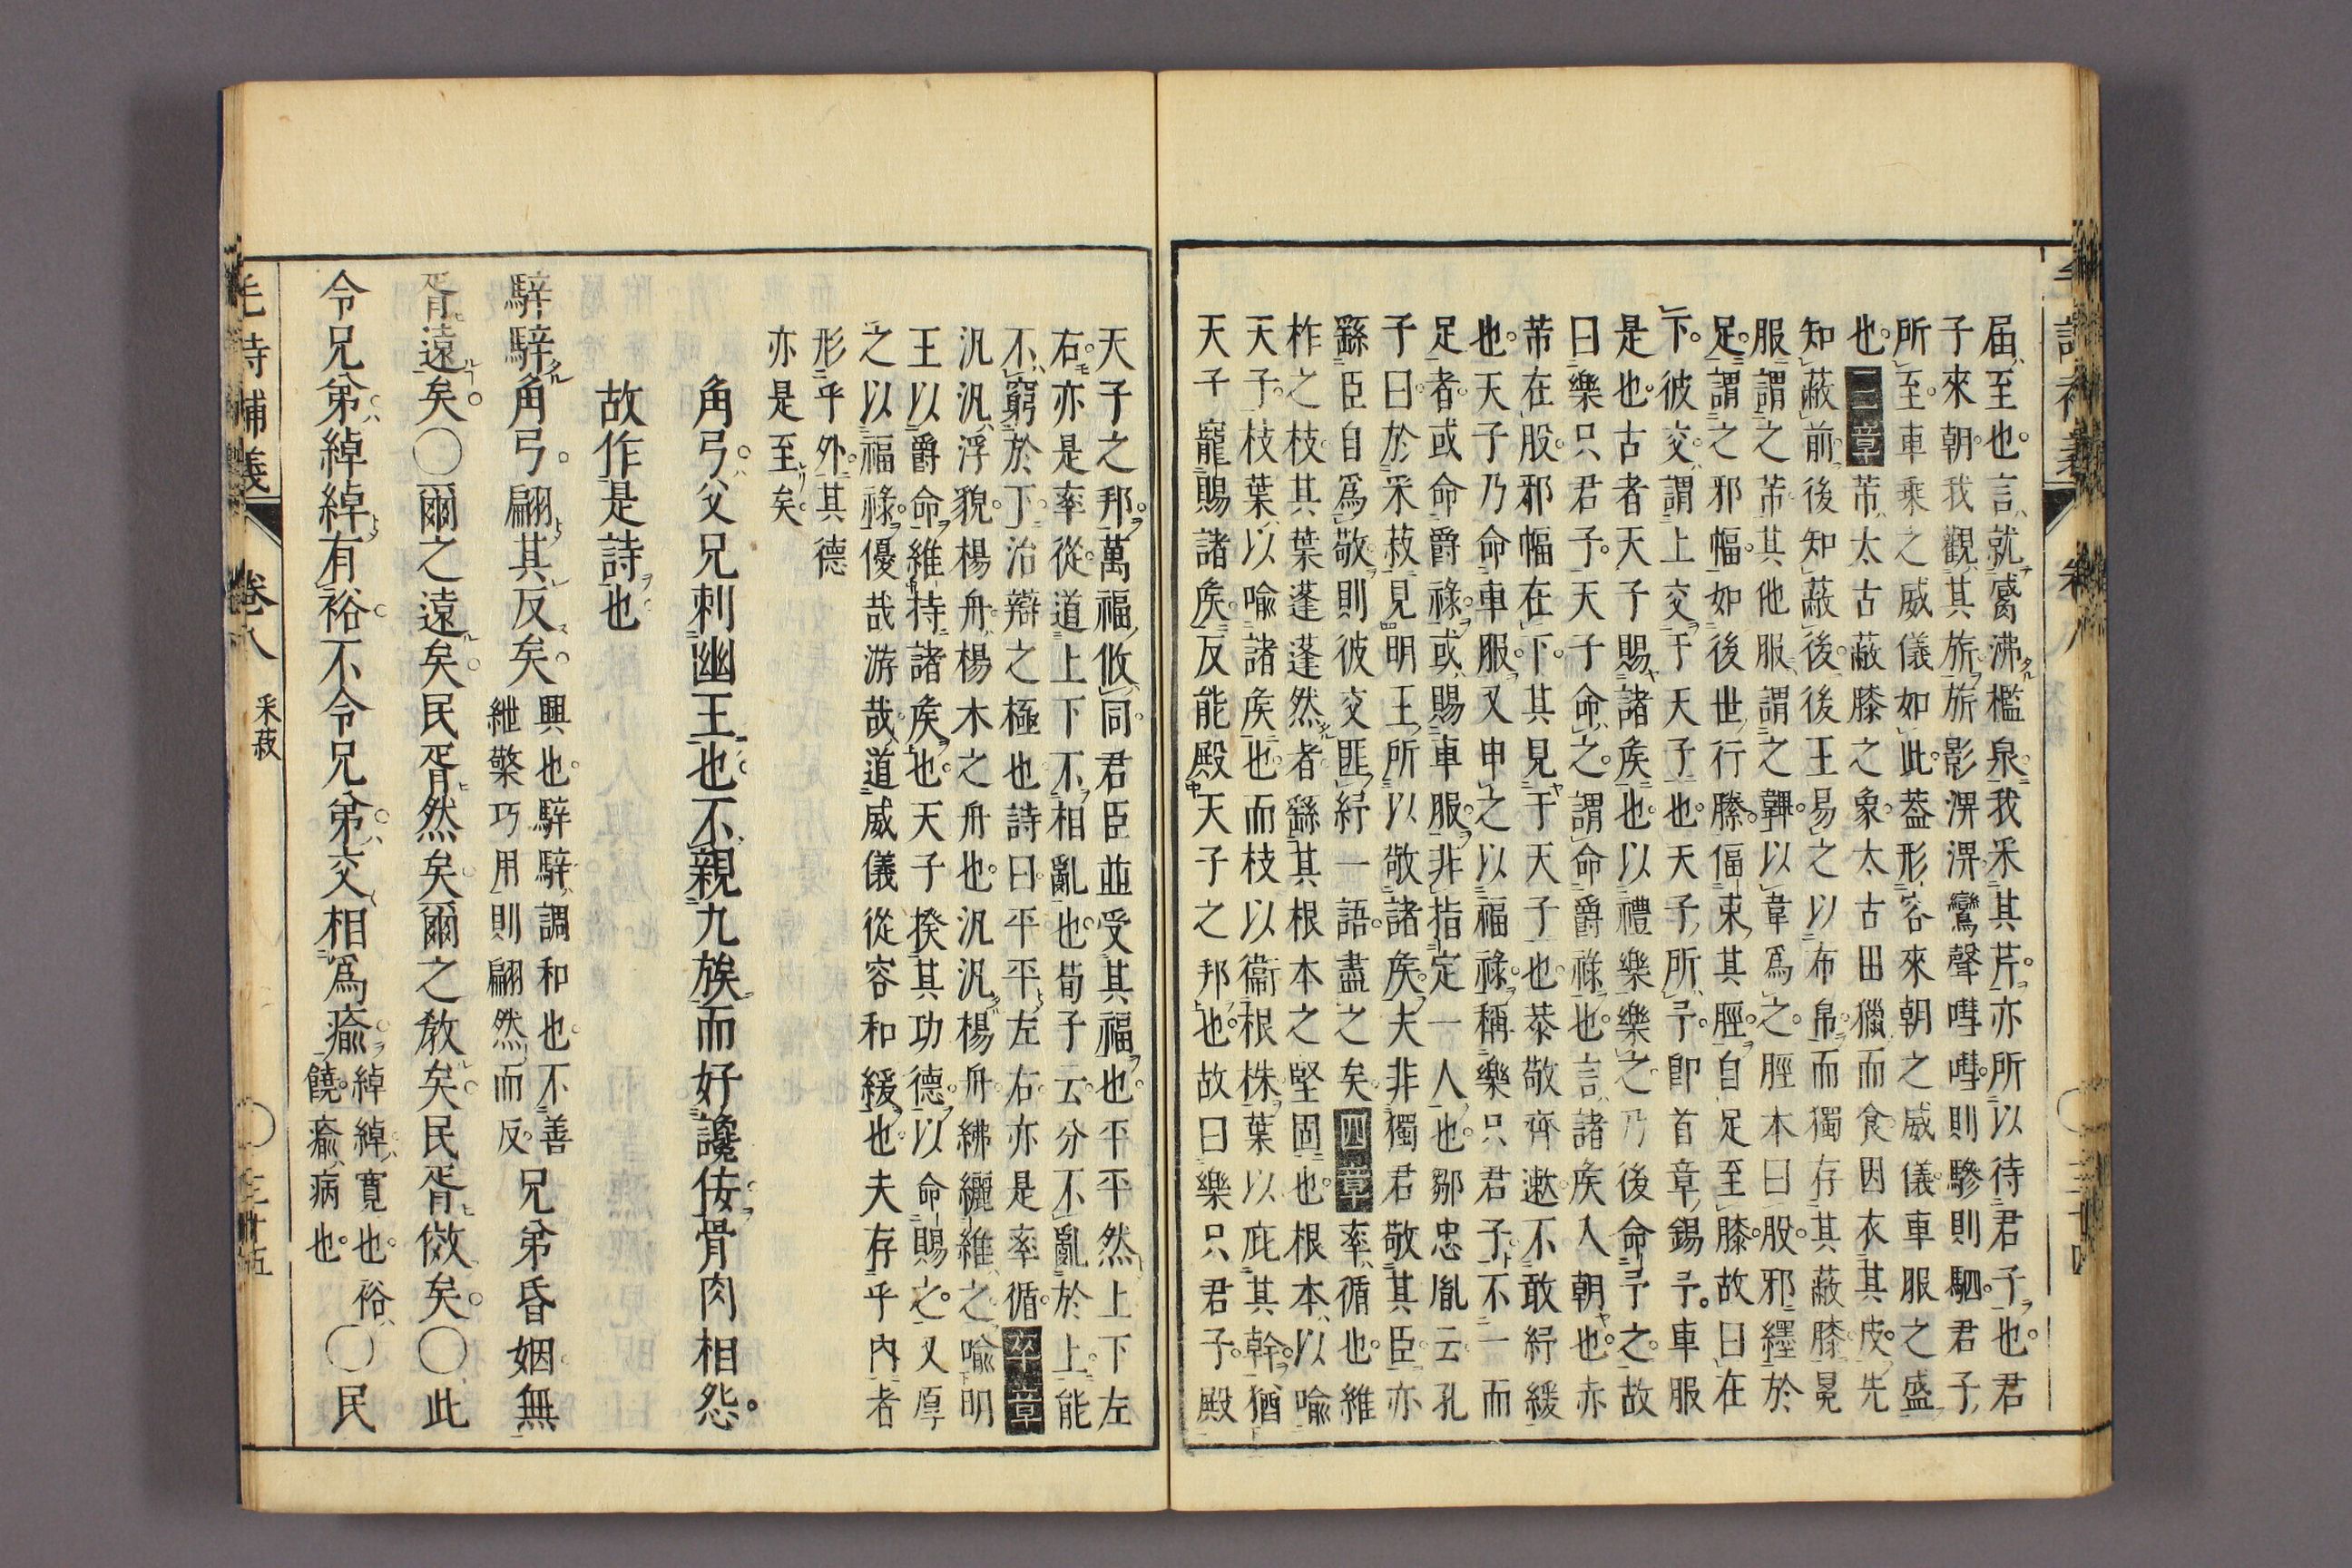 届至也。言就觱沸檻泉我釆其芹。亦所以待君子也。君
子來朝。我觀其旂。旂影淠淠鸞聲嘒嘒。則驂則駟。君子
所至。車乘之威儀如此。蓋形容來朝之威儀。車服之盛
也。三章芾太古蔽膝之象。太古田獵而食。因衣其皮。先
知蔽前。後知蔽後。後王易之以布帛。而獨存其蔽膝。冕
服謂之芾。其他服謂之韠。以韋爲之。脛本曰股。邪纏於
足。謂之邪幅。如後世行縢。偪束其脛。自足至膝。故曰在
下。彼交。謂上交于天子也。天子所予。即首章錫予。車服
是也。古者天子賜諸矦也。以禮樂樂之。乃後命予之。故
曰樂只君子。天子命之。謂命爵祿也。言諸矦入朝也。赤
芾在股。邪幅在下。其見于天子也。恭敬齊遬不敢紓緩
也。天子乃命車服。又申之以福祿。稱樂只君子。不一而
足者。或命爵祿。或賜車服。非指定一人也。鄒忠胤云孔
子曰。於釆菽見明王所以敬諸矦。夫非獨君敬其臣。亦
繇臣自爲敬。則彼交匪紓一語。盡之矣。四章率循也。維
柞之枝。其葉蓬蓬然者。繇其根本之堅固也。根本。以喩
天子。枝葉以喩諸矦也。而枝以衞根株。葉以庇其幹。猶
天子寵賜諸矦。反能殿天子之邦也。故曰樂只君子。殿
天子之邦。萬福攸同。君臣並受其福也。平平然上下左
右。亦是率從。道上下不相亂也。荀子云分不亂於上。能
不窮於下。治辯之極也詩曰。平平左右。亦是率循。五章
汎汎浮貌。楊舟。楊木之舟也。汎汎楊舟。紼纚維之。喩明
王以爵命維持諸矦也。天子揆其功德。以命賜之。又厚
之以福祿。優哉游哉。道威儀從容和緩也。夫存乎內者
形乎外。其德
亦是至矣。
角弓。父兄刺幽王也。不親九族。而好讒佞。骨肉相怨。
故作是詩也
騂騂角弓。翩其反矣。興也。騂騂調和也。不善
紲檠巧用則翩然而反。兄弟昏姻。無
胥遠矣。〇爾之遠矣。民胥然矣。爾之敎矣。民胥傚矣。〇此
令兄弟。綽綽有裕。不令兄弟。交相爲瘉。綽綽寬也。裕
饒瘉病也。〇民
毛詩補義
卷八
采菽